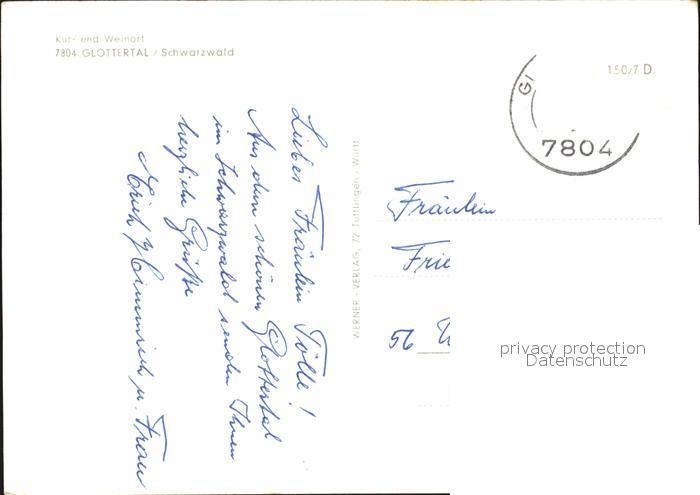 Kur- und Weinort
7804 GLOTTERTAL / Schwarzwald
150/7 D
Gl
7804
WERNER - VERLAG, 72 Tuttlingen / Württ
Liebes Fräulein Tölle!
Aus dem schönen Glottertal
im Schwarzwald senden Ihnen
herzliche Grüße
Erich u. Frau
Fräulein
Frie
56
privacy protection
Datenschutz